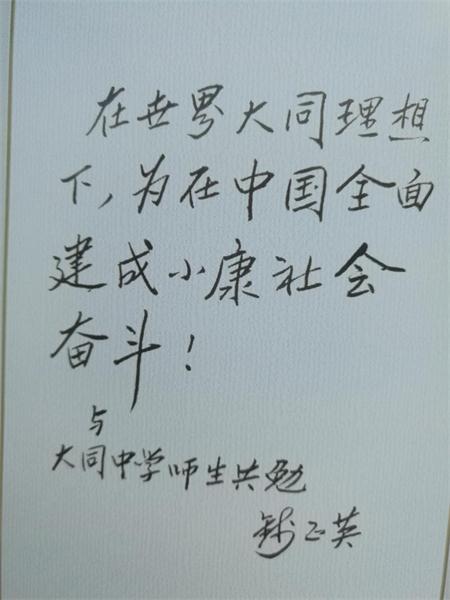 在世界大同理想
下,为在中国全面
建成小康社会
奋斗!
与
大同中学师生共勉
钱正英